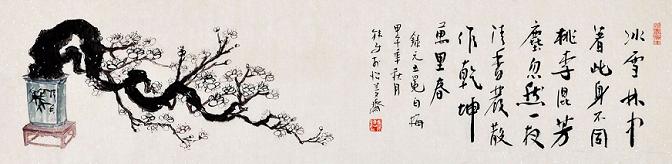 冰雪林中
着此身不同
桃李混芳
塵忽然一夜
清香發散
作乾坤
萬里春
錄元王冕白梅
甲午年秋月